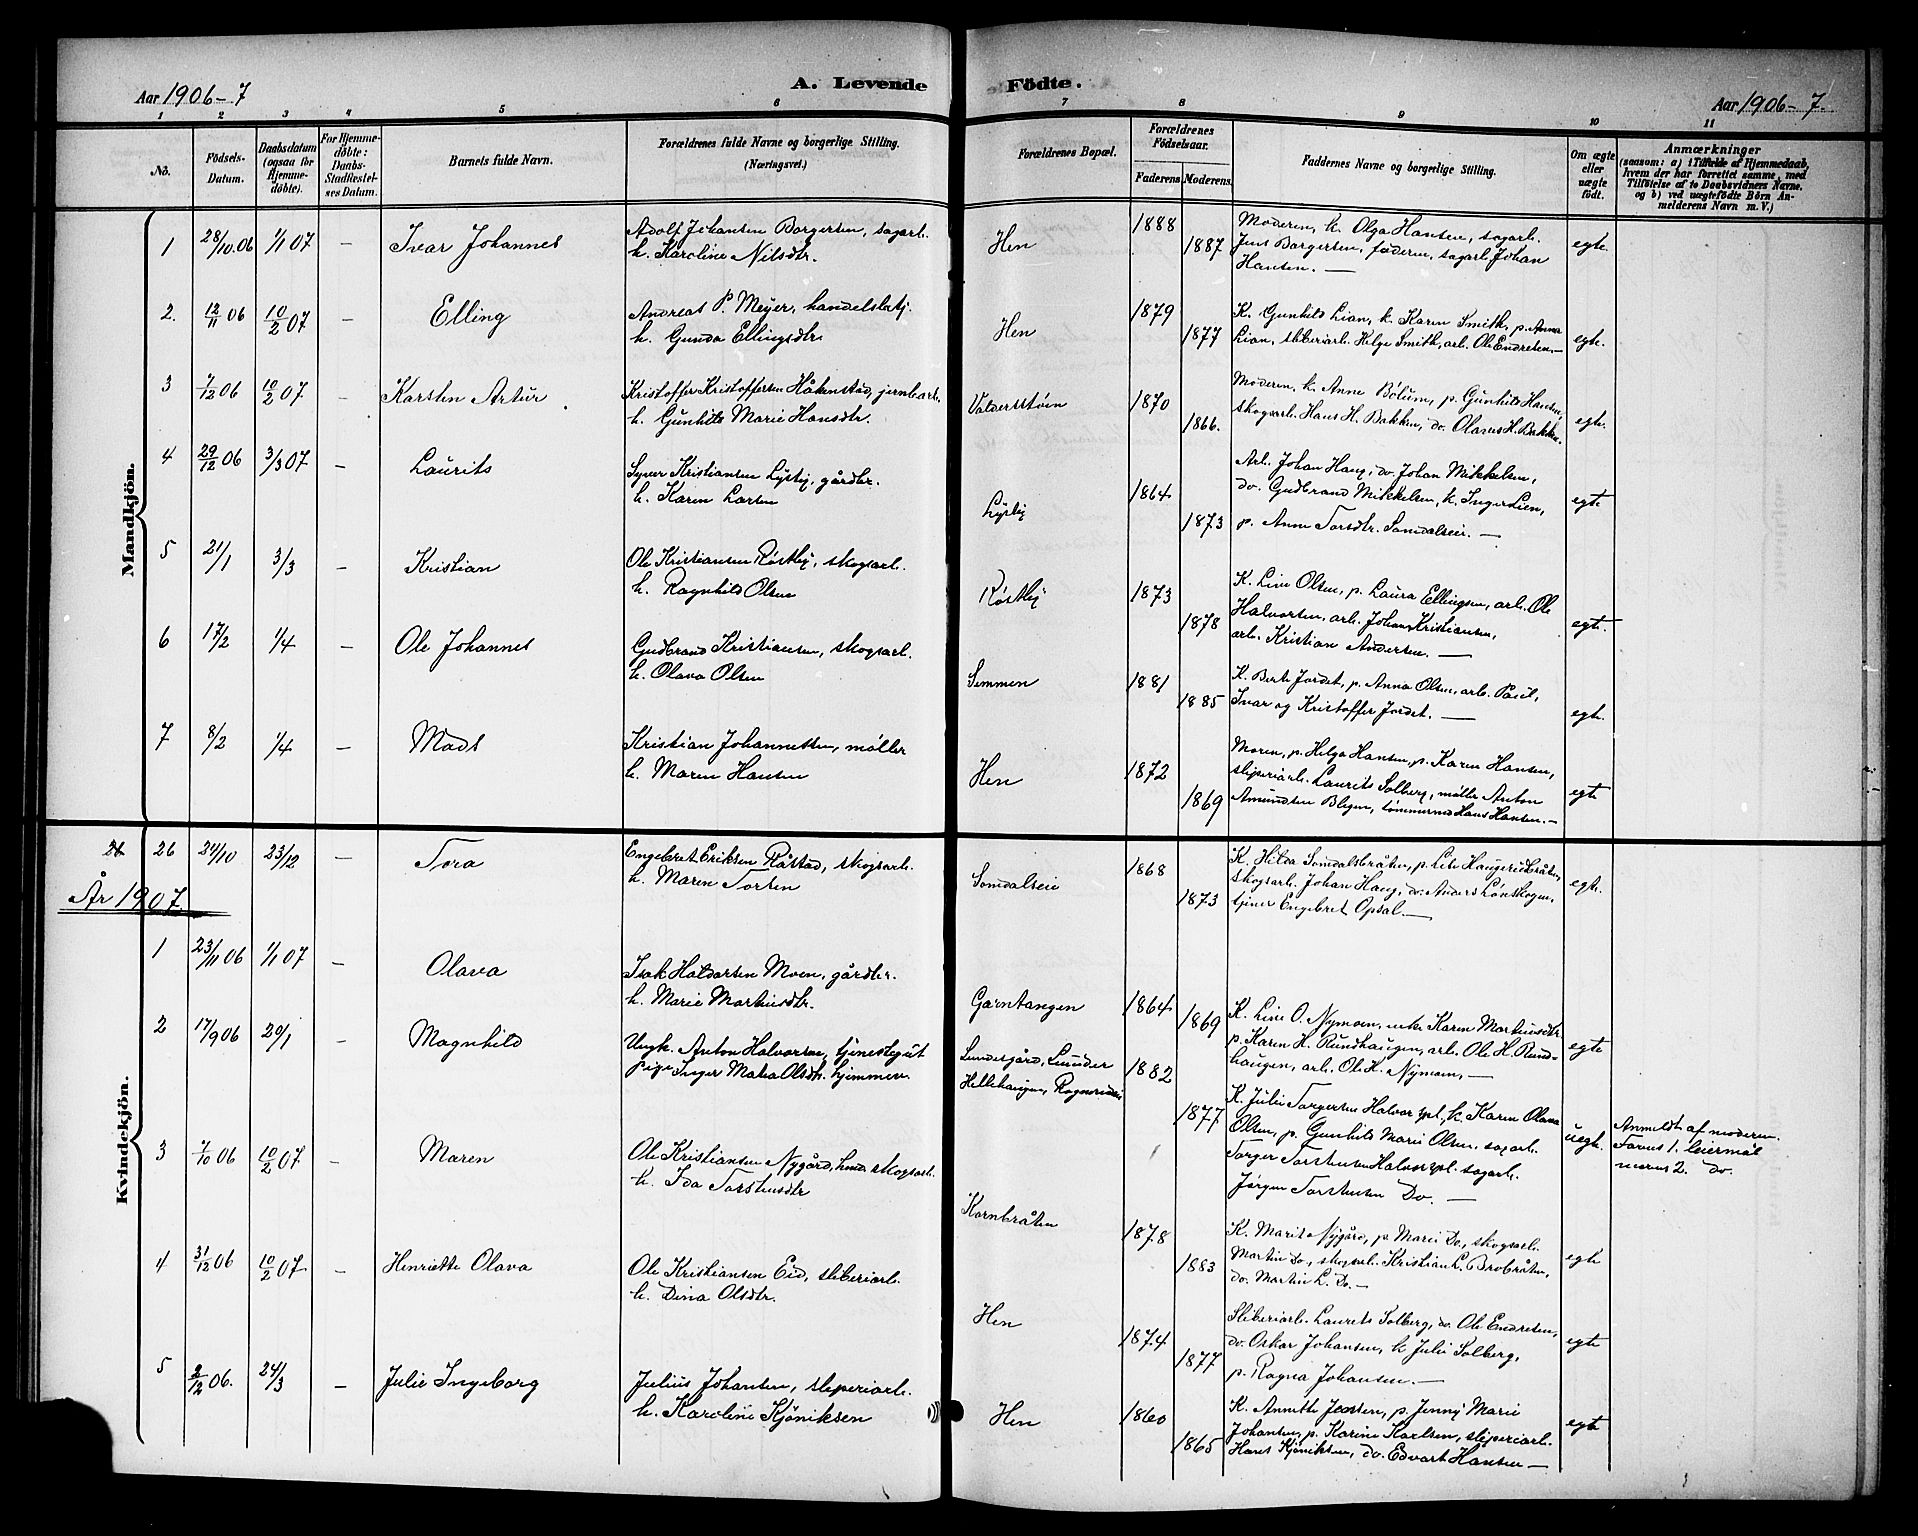 Aar 1906-7
A. Levende
Födte.
Aar 1906-7.
1 2 3 4 5 6 7 8 9 10 11
No.
Födsels-Datum.
Daabsdatum (ogsaa for Hjemme-döbte).
For Hjemme-döbte: Daabs-Stadfæstel-ses Datum.
Barnets fulde Navn.
Forældrenes fulde Navne og borgerlige Stilling.
(Næringsvei.)
Forældrenes Bopæl.
Forældrenes Födselsaar.
Faderens. Moderens.
Faddernes Navne og borgerlige Stilling.
Om ægte eller uægte födt.
Anmærkninger
(saasom: a) i Tilfælde af Hjemmedaab,
hvem der har forrettet samme, med
Tilföielse af to Daabsvidners Navne,
og b) ved uægtefödte Börn An-
melderens Navn m. V.)
Mandkjön.
1 28/10.06 1/1 07 — Ivar Johannes
Adolf Johansen Borgersen, sagarb.
h. Karoline Nilsdtr.
Hen 1888 1887
Moderen, k. Olga Hansen, sagarb.
Jens Borgersen, faderen, sagarb. Johan
Hansen. —
egte.
2. 12/11 06 10/2 07 — Elling
Andreas P. Meyer, handelsbetj.
h. Gunda Ellingsdtr.
Hen 1879 1877
K. Gunhild Lian, k. Karen Smith, p. Anna
Lian, sliberiarb. Helge Smith, arb. Ole Endresen.—
egte.
3 7/12 06 10/2 07 — Karsten Artur
Kristoffer Kristoffersen Håkenstad, jernbarb.
h. Gunhild Marie Hansdtr.
Valdersstøen 1870 1866.
Moderen, k. Anne Bólum, p. Gunhild Hansen,
skogsarb. Hans H. Bakken, do. Olaves H. Bakken.
egte.
4 29/12 06 3/3 07 — Laurits
Syver Kristiansen Lysby, gårdbr.
h. Karen Larsen
Lysby 1864 1873
Arb. Johan Haug, do. Johan Mikkelsen,
do. Gudbrand Mikkelsen, k. Inger Lien,
p. Anne Torsdtr. Somdalseie. —
egte
5 21/1 3/3 — Kristian
Ole Kristiansen Røstby, skogsarb.
h. Ragnhild Olsen
Røstby 1873 1878
K. Live Olsen, p. Laura Ellingsen, arb. Ole
Halvorsen, arb. Johan Kristiansen,
arb. Kristian Andersen. —
egte.
6 17/2 1/4 — Ole Johannes
Gudbrand Kristiansen, skogsarb.
h. Olava Olsen
Semmen 1881 1885
K. Berte Jordet, p. Anna Olsen, arb. Paul,
Ivar og Kristoffer Jordet. —
egte.
7 8/2 1/4 — Mads
Kristian Johannessen, møller
h. Maren Hansen
Hen 1872 1869
Moren, p. Helga Hansen, p. Karen Hansen,
sliperiarb. Laurits Solberg, møller Anton
Amundsen Blegen, tømmermd Hans Hansen.—
egte
26 24/10 23/12 — Tora
Engebret Eriksen Råstad, skogsarb.
h. Maren Torsen
Somdalseie 1868 1873
K. Hilda Somdalsbråten, p. Lise Haugeriebråten,
skogsarb. Johan Haug, do. Anders Lønskogen,
tjener Engebret Opsal. —
egte.
År 1907
Kvindekjön.
1 23/11 06 1/1 07 — Olava
Isak Halvorsen Moen, gårdbr.
h. Marie Martinsdtr.
Garntangen 1864 1869
K. Live O. Nymoen, enke Karen Martinsdtr.
p. Karen H. Rundhaugen, arb. Ole H. Rund-
haugen, arb. Ole K. Nymoen, —
egte
2 17/9 06 20/1 — Magnhild
Ungk. Anton Halvorsen, tjenestegut
Pige Inger Matea Olsdtr. hjemmev.
Lundesgård, Lunder
Hellehaugen,
1882 1877
K. Julie Torgersen Halvorspl, k. Karen Olava
Olsen, p. Gunhild Marie Olsen, sagarb.
Torger Torstensen Halvorspl. sagarb.
Jørgen Torstensen Do. —
uegte.
Anmeldt af moderen.
Farens 1. leiermål
morens 2. do.
3 7/10 06 10/2 07 — Maren
Ole Kristiansen Nygård, skogsarb.
h. Ida Torstensdtr
Kornbråten 1878 1883
K. Marit Nygård, p. Marie Do., skogsarb.
Martin Do., skogsarb. Kristian L. Brobråten,
do. Martin L. Do. —
egte
4 31/12 06 10/2 07. — Henriette Olava
Ole Kristiansen Eid, sliberiarb.
h. Dina Olsdtr.
Hen 1874 1877
Sliberiarb. Laurits Solberg, do. Ole Endresen,
do. Oskar Johansen, k. Julie Solberg,
p. Ragna Johansen. —
egte
5 2/12 06. 24/3 — Julie Ingeborg
Julius Johansen, sliperiarb.
h. Karoline Kjøniksen
Hen 1860 1865
K. Annette Jensen, p. Jenny Marie
Johansen, p. Karine Karlsen, sliperiarb.
Hans Kjøniksen, do. Edvart Hansen —
egte